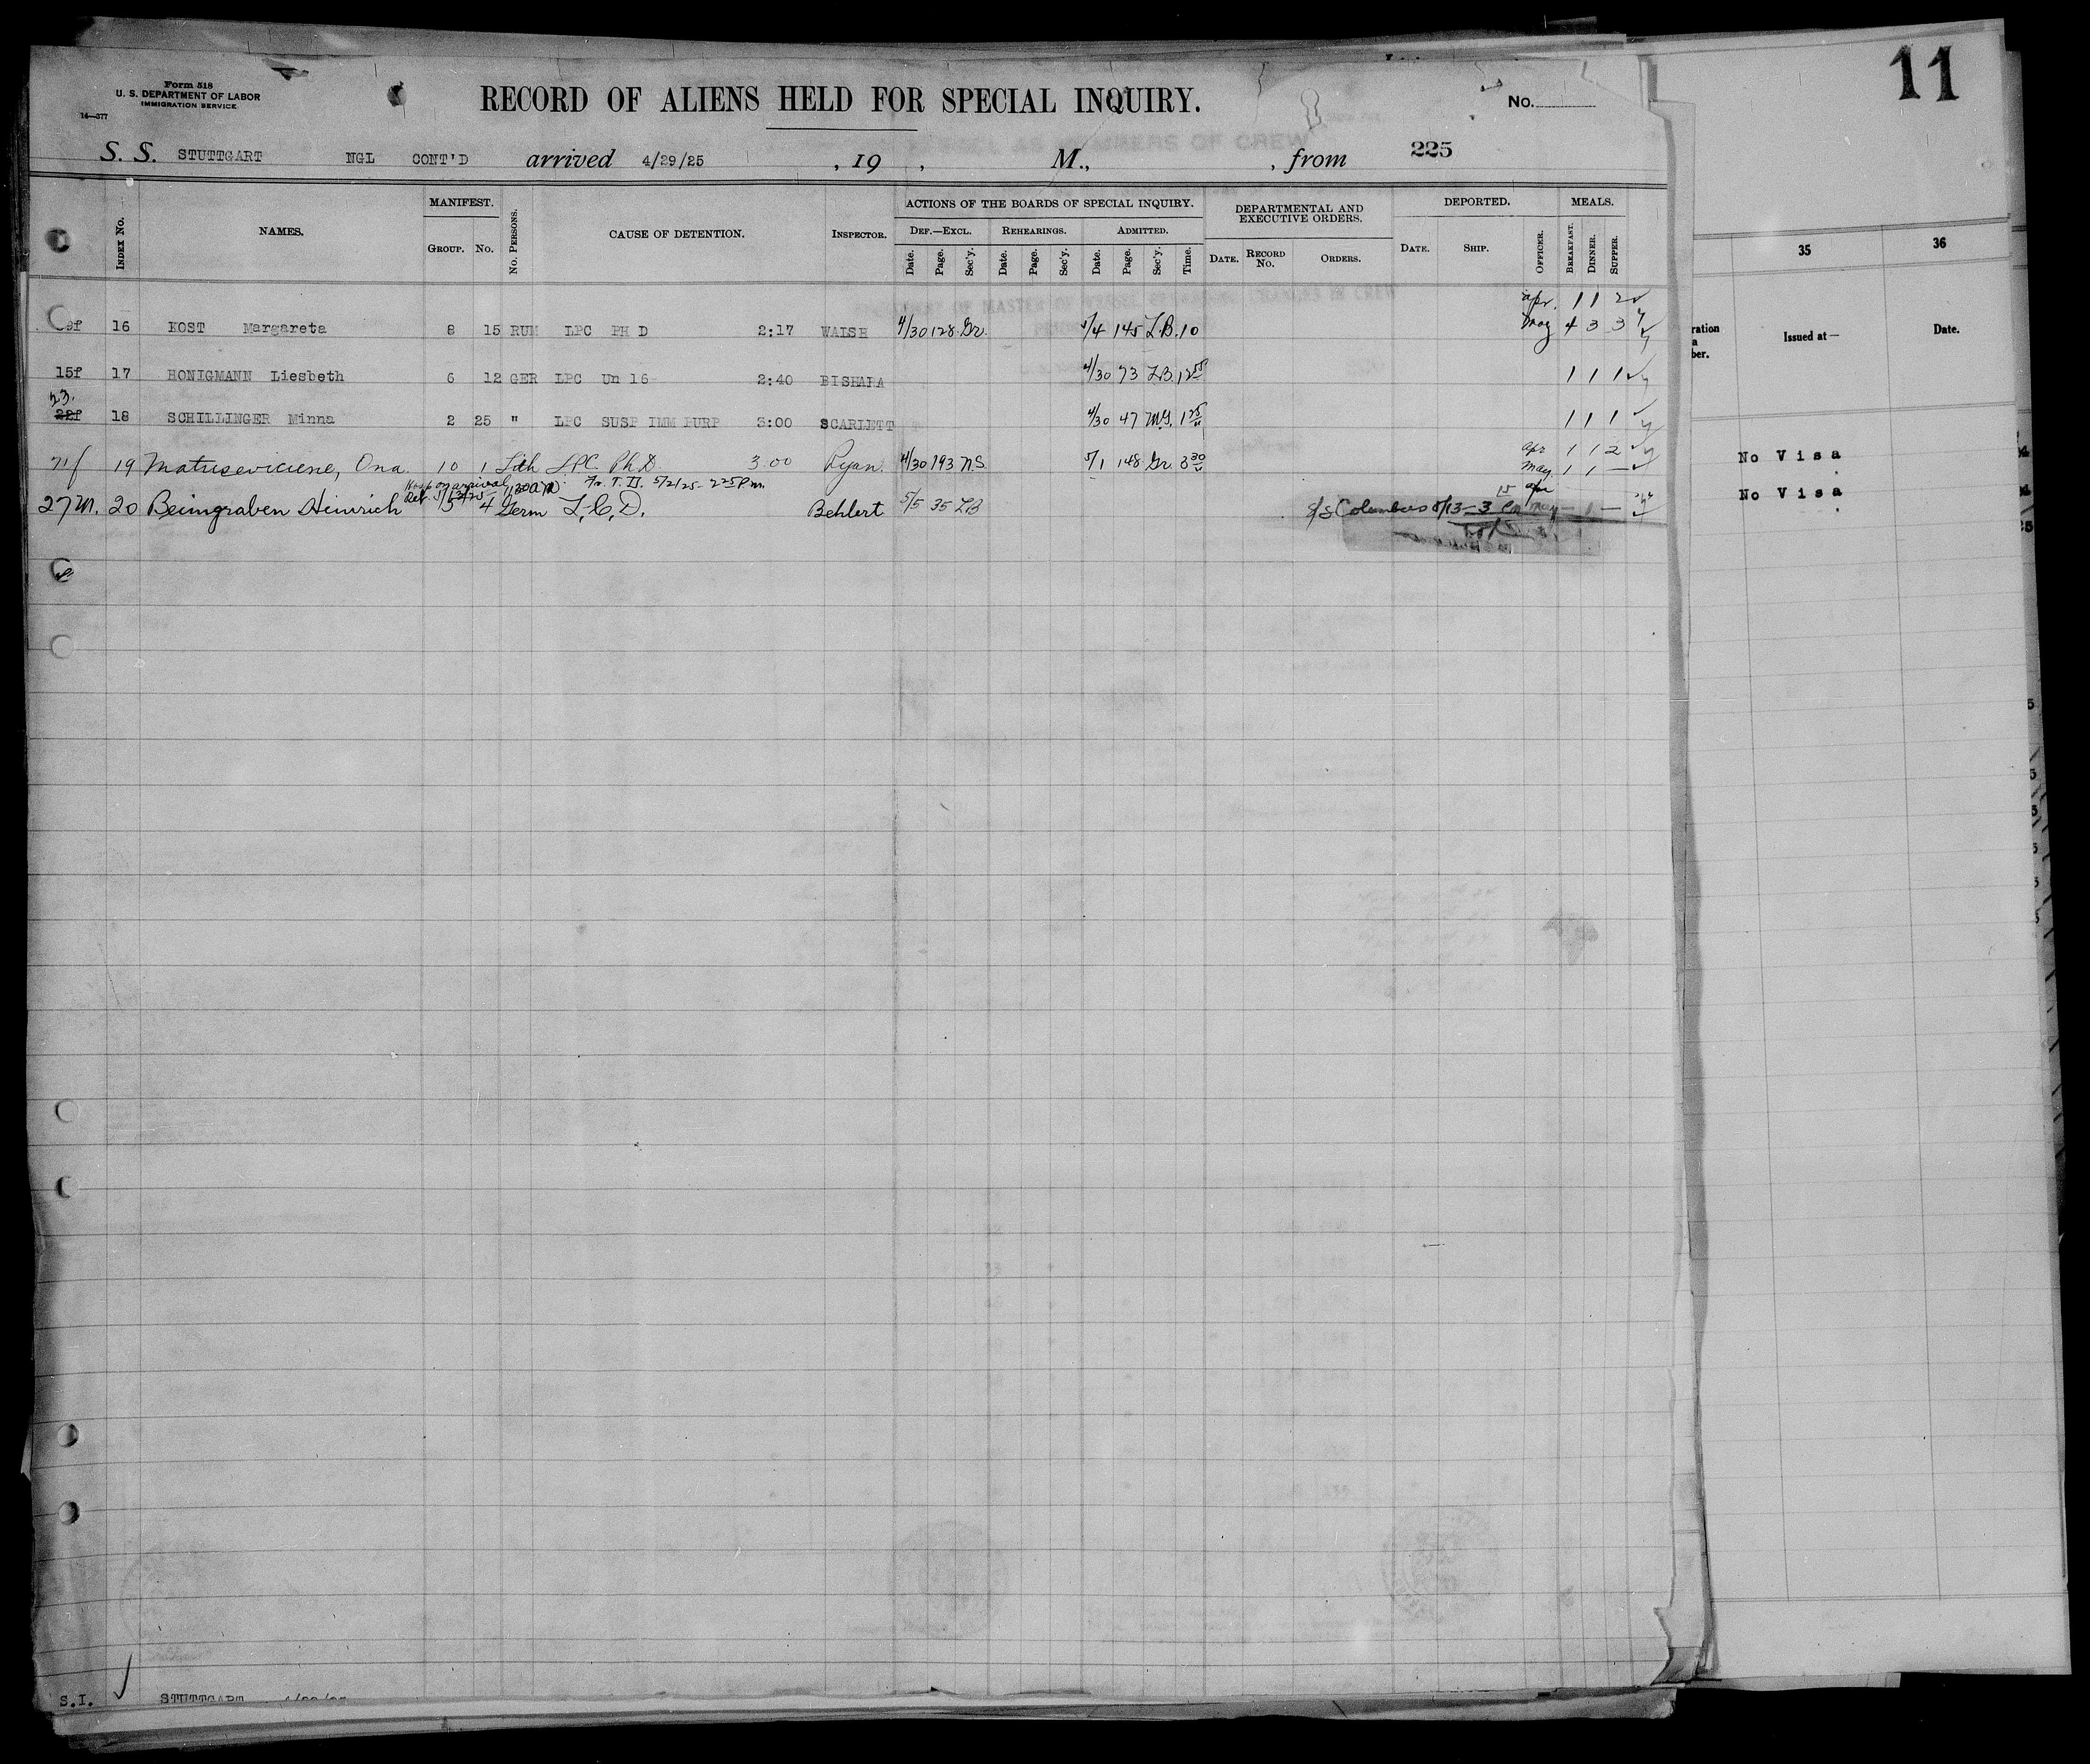 Form 518
U. S. DEPARTMENT OF LABOR
IMMIGRATION SERVICE
14—377
RECORD OF ALIENS HELD FOR SPECIAL INQUIRY.
No.
11
S. S. STUTTGART NGL CONT'D arrived 4/29/25 , 19 , M., , from 225
INDEX No. NAMES. MANIFEST. GROUP. No. No. PERSONS. CAUSE OF DETENTION. INSPECTOR. ACTIONS OF THE BOARDS OF SPECIAL INQUIRY. DEF.—EXCL. Date. Page. Sec'y. REHEARINGS. Date. Page. Sec'y. ADMITTED. Date. Page. Sec'y. Time. DEPARTMENTAL AND EXECUTIVE ORDERS. DATE. RECORD No. ORDERS. DEPORTED. DATE. SHIP. OFFICER. MEALS. BREAKFAST. DINNER. SUPPER.
35 36
Issued at— Date.
apr. 1 1 2
16 KOST Margareta 8 15 RUM LPC PH D 2:17 WALSH 4/30 128 Gr. 5/4 145 L.B. 10 May 4 3 3
15f 17 HONIGMANN Liesbeth 6 12 GER LPC Un 16 2:40 BISHARA 4/30 73 L.B. 1 1 1
23.
22f 18 SCHILLINGER Minna 2 25 " LPC SUSP IMM PURP 3:00 SCARLETT 4/30 47 M.G. 1 25 1 1 1
71f 19 Matuseviciene, Ona 10 1 Lith LPC. Ph.D. 3.00 Ryan. 4/30 193 N.S. 5/1 148 Gr. 3 30 apr 1 1 2
May 1 1 —
No Visa
Hosp on arrival
27m. 20 Beimgraben Heinrich 3 4 Germ L.C.D. Behlert 5/5 35 LB S/S Columbus 5/13
No Visa
S.I. STUTTGART